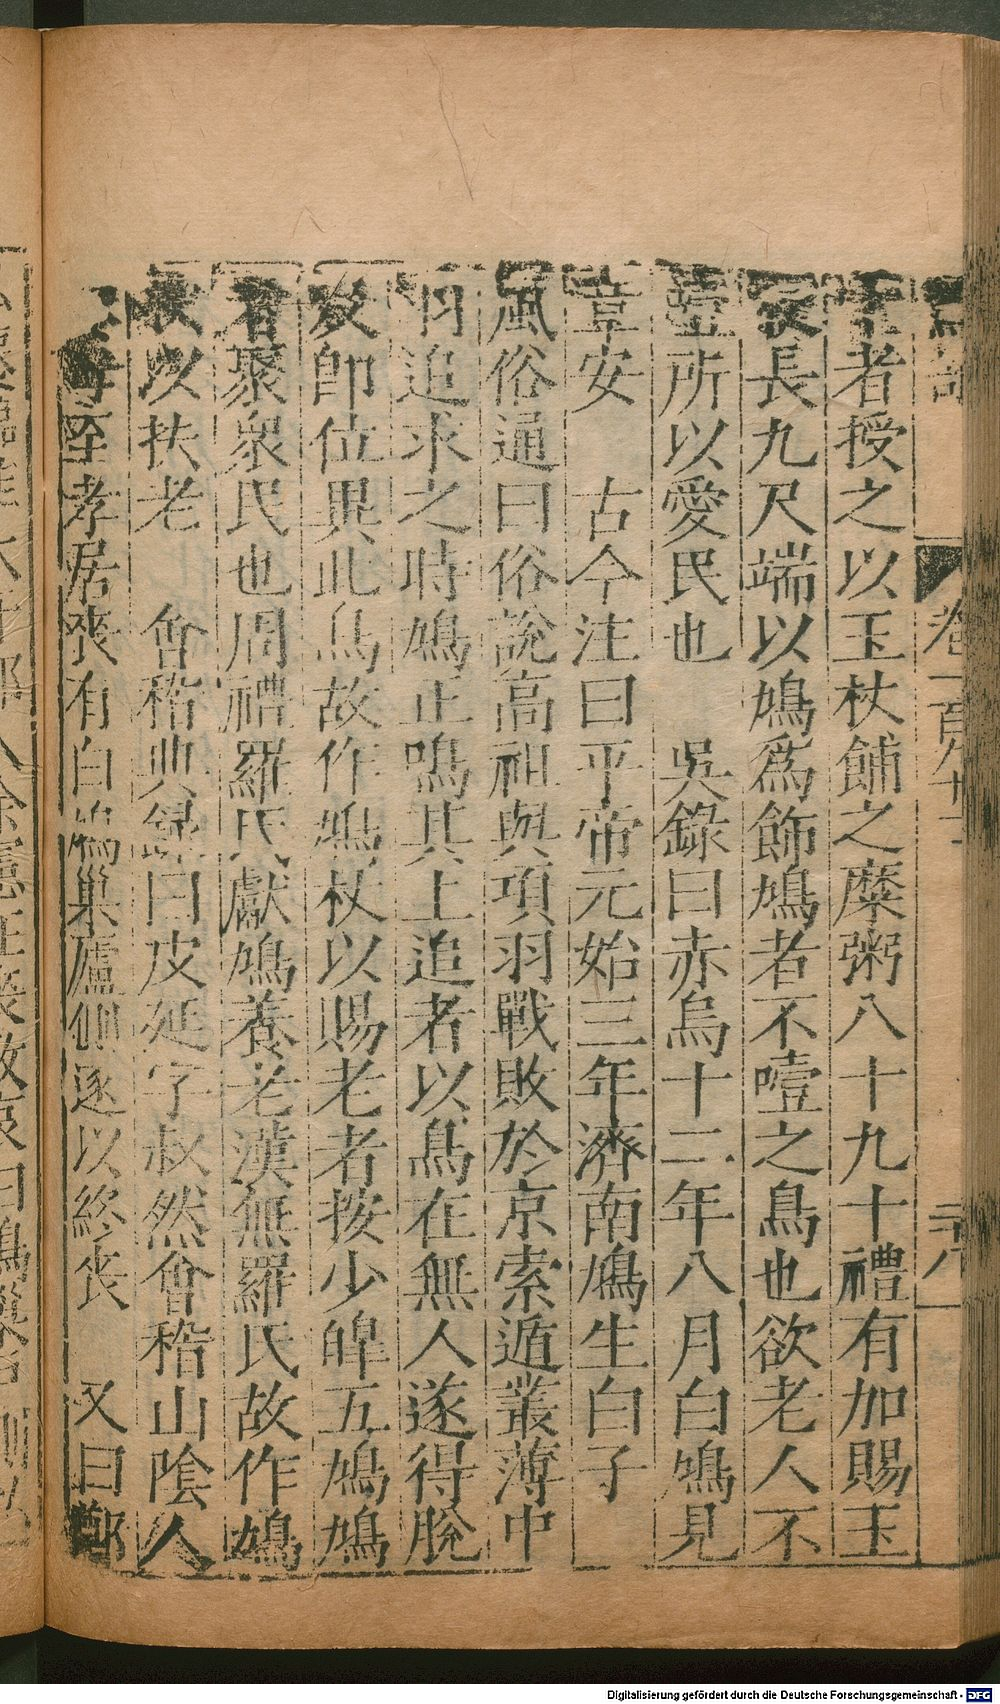 卷一百八十一
二十八
者授之以玉杖餔之糜粥八十九十禮有加賜玉
杖長九尺端以鳩爲飾鳩者不噎之鳥也欲老人不
噎所以愛民也 吳錄曰赤烏十二年八月白鳩見
章安 古今注曰平帝元始三年濟南鳩生白子
風俗通曰俗說高祖與項羽戰敗於京索遁叢薄中
羽追求之時鳩正鳴其上追者以鳥在無人遂得脫
及即位異此鳥故作鳩杖以賜老者按少皡五鳩鳩
者聚衆民也周禮羅氏獻鳩養老漢無羅氏故作鳩
杖以扶老 會稽典錄曰皮延字叔然會稽山陰人
母至孝居喪有白鳩巢廬側遂以終喪 又曰鄭
Digitalisierung gefördert durch die Deutsche Forschungsgemeinschaft - DFG